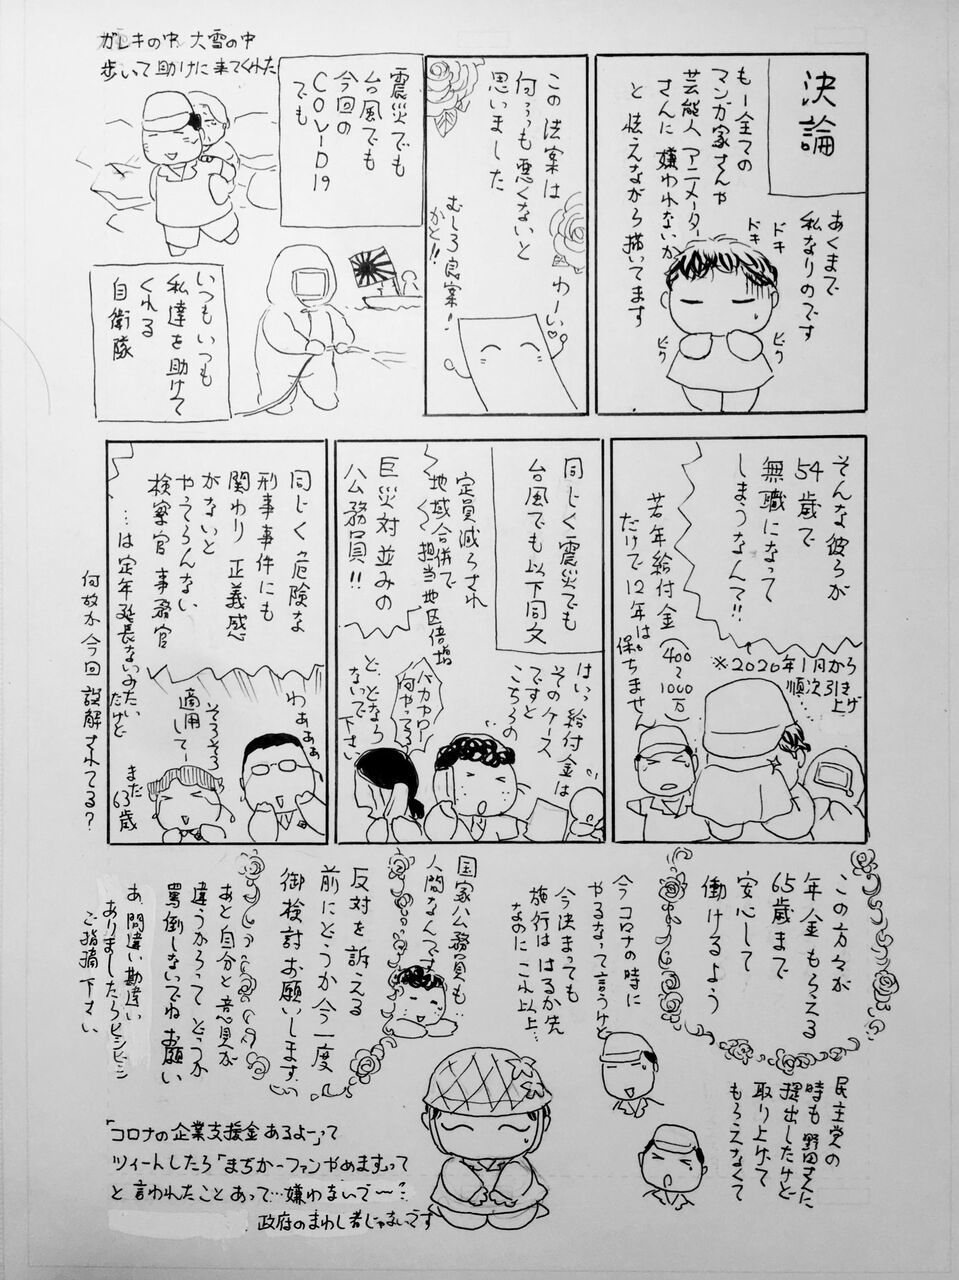 決論
あくまで
私なりのです
ドキ
ドキ
ビク
ビク
もー全ての
マンガ家さんや
芸能人 アニメーター
さんに嫌われないか
と怯えながら描いてます
この法案は
何っっも悪くないと
思いました
わーい♡
むしろ良案!
かと!!
震災でも
台風でも
今回の
COVID19
でも
ガレキの中、大雪の中
歩いて助けに来てくれた
いつもいつも
私達を助けて
くれる
自衛隊
そんな彼らが
54歳で
無職になって
しまうなんて!!
※2020年1月から
順次引き上げ
若年給付金(400~1000万)
だけで12年は
保ちません
同じく震災でも
台風でも以下同文
はいっ給付金は
そのケース
ですと
こちらの
定員減らされ
地域合併で
担当地区倍増
巨災対並みの
公務員!!
バカヤロー
何やってる
と、どなら
ないで下さい
同じく危険な
刑事事件にも
関わり 正義感
がないと
やってらんない
検察官 事務官
…は定年延長ないみたい
だけど
わぁぁぁ
そろそろ
適用
してー
まだ
63歳
何故か今回誤解されてる?
この方々が
年金もらえる
65歳まで
安心して
働けるよう
民主党の
時も野田さんに
提出したけど
取り上げて
もらえなくて
今コロナの時に
やるなって言うけど
今決まっても
施行ははるか先
なのにこれ以上…
国家公務員も
人間なんです
反対を訴える
前にどうか今一度
御検討お願いします
あと自分と意見が
違うからってどうか
罵倒しないでねお願い
あ、間違い勘違い
ありましたらビシビシ
ご指摘下さい
「コロナの企業支援金あるよー」って
ツィートしたら「まぢかーファンやめますって
と言われたことあって…嫌わないで〜?
政府のまわし者じゃないです